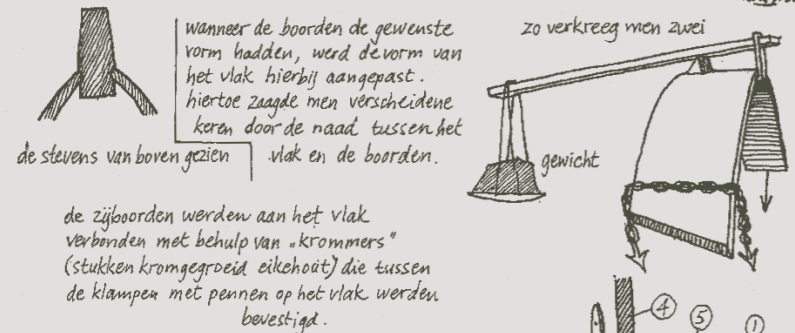 wanneer de boorden de gewenste
vorm hadden, werd de vorm van
het vlak hierbij aangepast.
hiertoe zaagde men verscheidene
keren door de naad tussen het
vlak en de boorden.
de stevens van boven gezien
zo verkreeg men zwei
gewicht
de zijboorden werden aan het vlak
verbonden met behulp van „krommers"
(stukken kromgegroeid eikehout) die tussen
de klampen met pennen op het vlak werden
bevestigd.
4
5
1